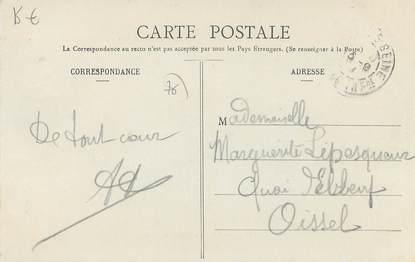 CARTE POSTALE
La Correspondance au recto n'est pas acceptée par tous les Pays Étrangers. (Se renseigner à la Poste)
CORRESPONDANCE
ADRESSE
76
De tout cœur
Mademoiselle
Marguerite Lepesqueur
Quai d'Elbeuf
Oissel
SEINE